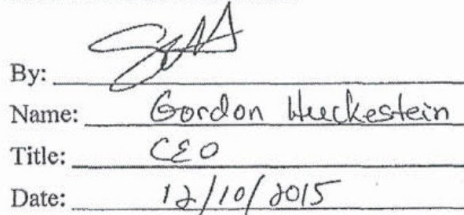 By:
Name: Gordon Huckestein
Title: CEO
Date: 12/10/2015